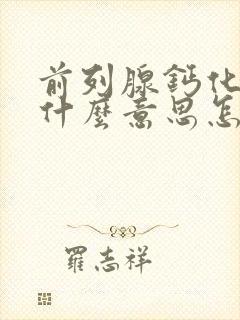 前列腺鈣化
什麼意思怎
羅志祥